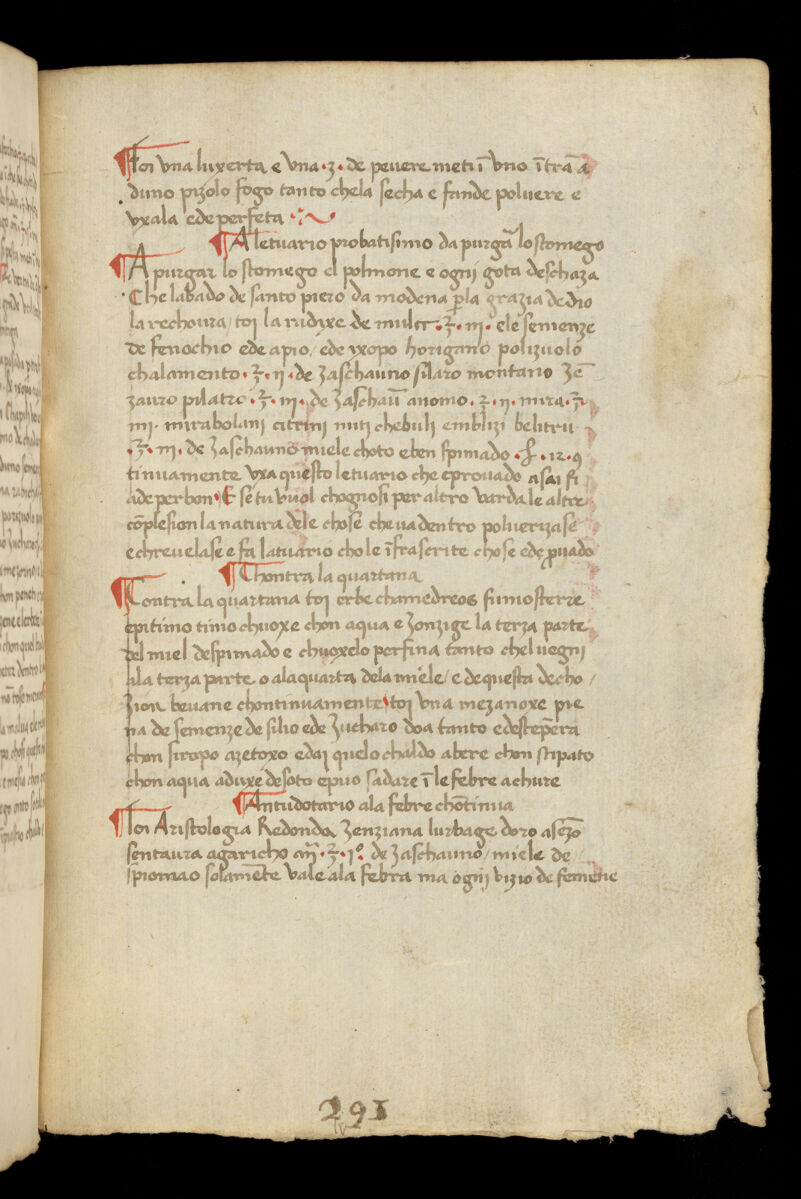 ¶Toi una luxerta e una .ʒ. de pevere meti ī uno ītrā a
duno pizolo fogo tanto chela secha e fande polvere e
uxala ede perfeta
¶Aletuario probatisimo da purgā lo stomego
¶A purgar lo stomego el polmone e ogni gota deschaza
Che labado de santo piero da modena p̄la grazia de dio
la rechoura / toi la radixe de .℥. iii. ele semenze
de fenochio ede apio / ede yxopo horigano polizuolo
chalamento .℥. ii. de zaschauno silaro montano zē
zauro pilatro .℥. iii. de zaschaū anomo .℥. ii. mira .℥.
iiii. mirabolani citrini nuti chebuli emblizi belitru
.℥. iii. de zaschauno miele choto eben spimado . 12. 9
tinuamente uxa questo letuario che eprovado asai si
ade per bon E se tu vuol chognosi per altro varda le altre
cōplesion la natura dele chose che va dentro polverizase
e chrevelase e fa latuario chole īfrascrite chose ede p̄vado
¶Chontra la quartana
¶Contra la quartana toi erbe chamedreos fumosterre
epitimo timo chuoxe chon aqua e zonzige la terza parte
del miel despimado e chuoxelo perfina tanto chel vegni
ala terza parte o ala quarta dela miele / e de questa decho /
zion bevane chontinuamente toi una mezanoxe pie
na de semenze de silio ede zucharo doa tanto edestēpera
chon siropo azetoxo edai quelo chaldo abere chon stipato
chon aqua aduxe desoto epuo sadare ī le febre achure
¶Antudotario ala febre chōtinua
¶Toi Aristologia Redonda zenziana lurbage doro asēzo
sentaura agaricho an̄ .℥. i°. de zaschauno / miele de
spiomao solamēte vale ala febra ma ogni vizio de femene
291